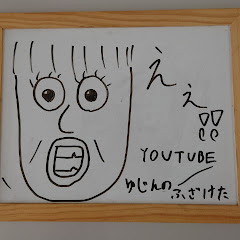 えぇ!!
YOUTUBE
ゆじんの
ふざけた